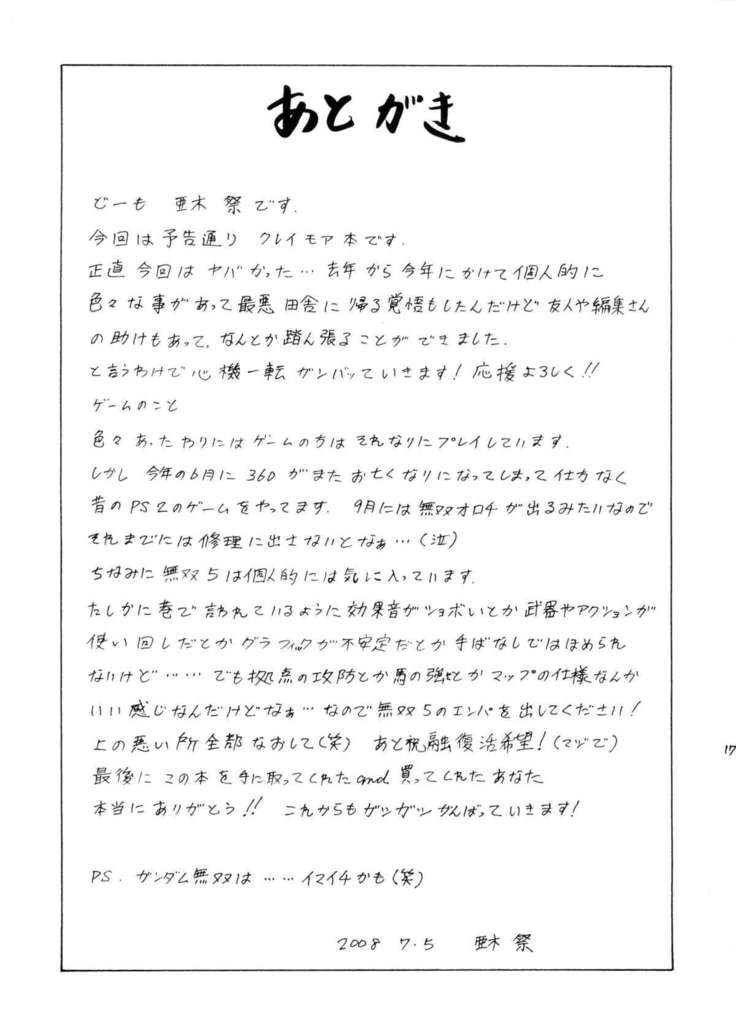 あとがき
どーも 亜木 祭です.
今回は予告通り クレイモア本です.
正直今回は ヤバかった… 去年から今年にかけて個人的に
色々な事があって最悪 田舎に帰る覚悟もしたんだけど 友人や編集さん
の助けもあって,なんとか踏ん張ることができました.
と言うわけで心機一転 ガンバッていきます! 応援よろしく!!
ゲームのこと
色々あったわりにはゲームの方はそれなりにプレイしています.
しかし 今年の6月に 360 がまたお亡くなりになってしまって仕方なく
昔のPS2のゲームをやってます. 9月には無双オロチが出るみたいなので
それまでには修理に出さないとなぁ…(泣)
ちなみに無双5は個人的には気に入っています.
たしかに巷で言われているように効果音がショボいとか武器やアクションが
使い回しだとかグラフィックが不安定だとか手ばなしではほめられ
ないけど…… でも拠点の攻防とか馬の強さとかマップの仕様なんか
いい感じなんだけどなぁ… なので無双5のエンパを出してください!
上の悪い所全部なおして(笑) あと祝融復活希望!(マヅで)
最後に この本を手に取ってくれたand買ってくれたあなた
本当にありがとう!! これからもガツガツがんばっていきます!
PS. ガンダム無双は……イマイチかも(笑)
2008 7.5 亜木 祭
17